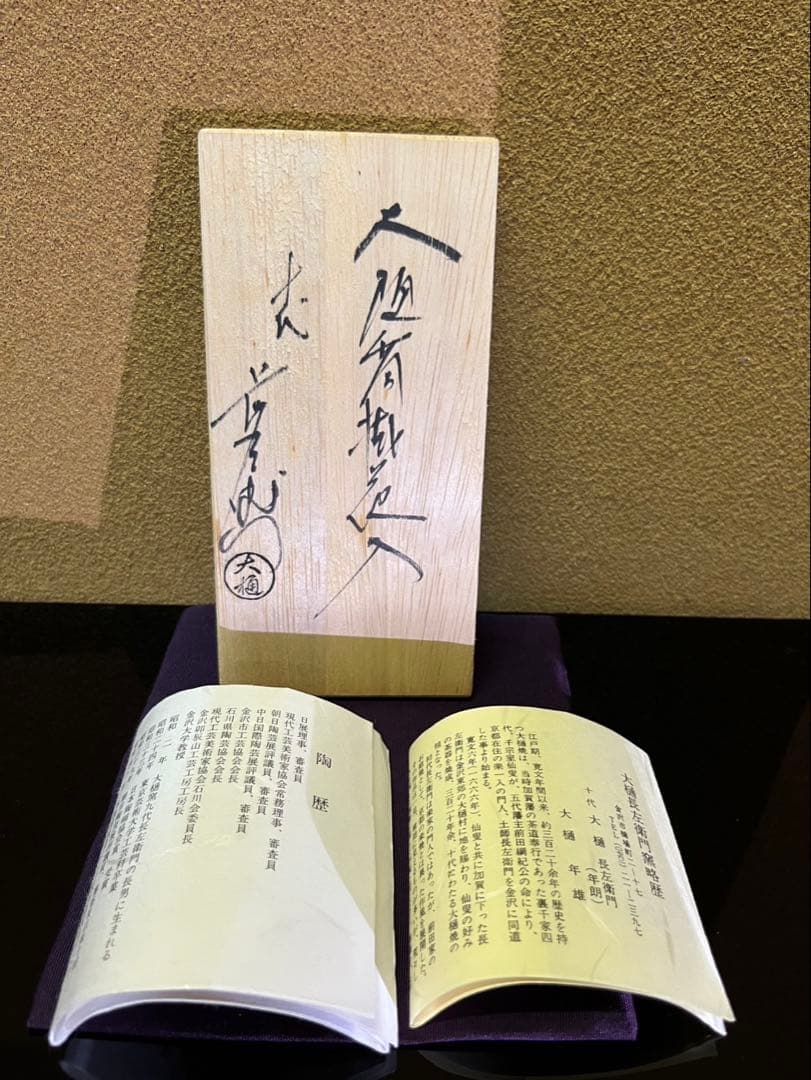 大樋育掛花入
十代
長左衛門
大樋
大樋長左衛門窯略歴
金沢市橋場町二―十七
十代 大樋 長左衛門
(年朗)
大樋 年雄
江戸期、寛文年間以来、約三百二十余年の歴史を持
つ大樋焼は、当時加賀藩の茶道奉行であった裏千家四
代、千宗室仙叟が、五代藩主前田綱紀公の命により、
京都在住の楽一入の門人、土師長左衛門を金沢に同道
した事より始まる。
寛文六年(一六六六年)、仙叟と共に加賀に下った長
左衛門は金沢東郊の大樋村に地を賜わり、仙叟の好み
の茶器を焼成、三百二十年余、十代にわたる大樋焼の
祖となった。
初代長左衛門は楽家の門人ではあったが、前田家の
陶歴
日展理事、審査員
現代工芸美術家協会常務理事、審査員
朝日陶芸展評議員、審査員
中日国際陶芸展評議員、審査員
金沢市工芸協会会長
石川県陶芸協会会長
現代工芸美術家協会石川会委員長
金沢卯辰山工芸工房工房長
金沢大学教授
昭和 二年 大樋焼九代長左衛門の長男に生まれる
東京芸術大学工芸科卒業